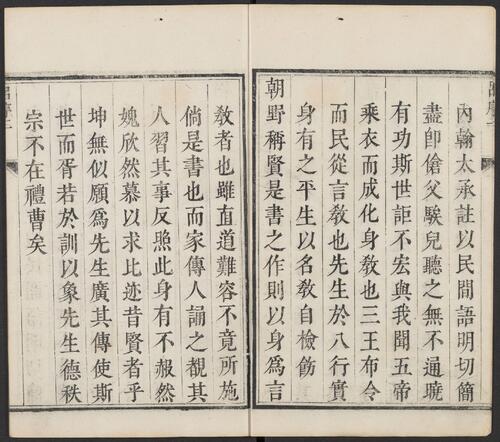 內翰太承註以民間語明切簡
盡卽傖父騃兒聽之無不通曉
有功斯世詎不宏與我聞五帝
垂衣而成化身敎也三王布令
而民從言敎也先生於八行實
身有之平生以名敎自檢飭
朝野稱賢是書之作則以身爲言
敎者也雖直道難容不竟所施
倘是書也而家傳人誦之覩其
人習其事反照此身有不赧然
媿欣然慕以求比迹昔賢者乎
坤無似願爲先生廣其傳使斯
世而胥若於訓以象先生德秩
宗不在禮曹矣